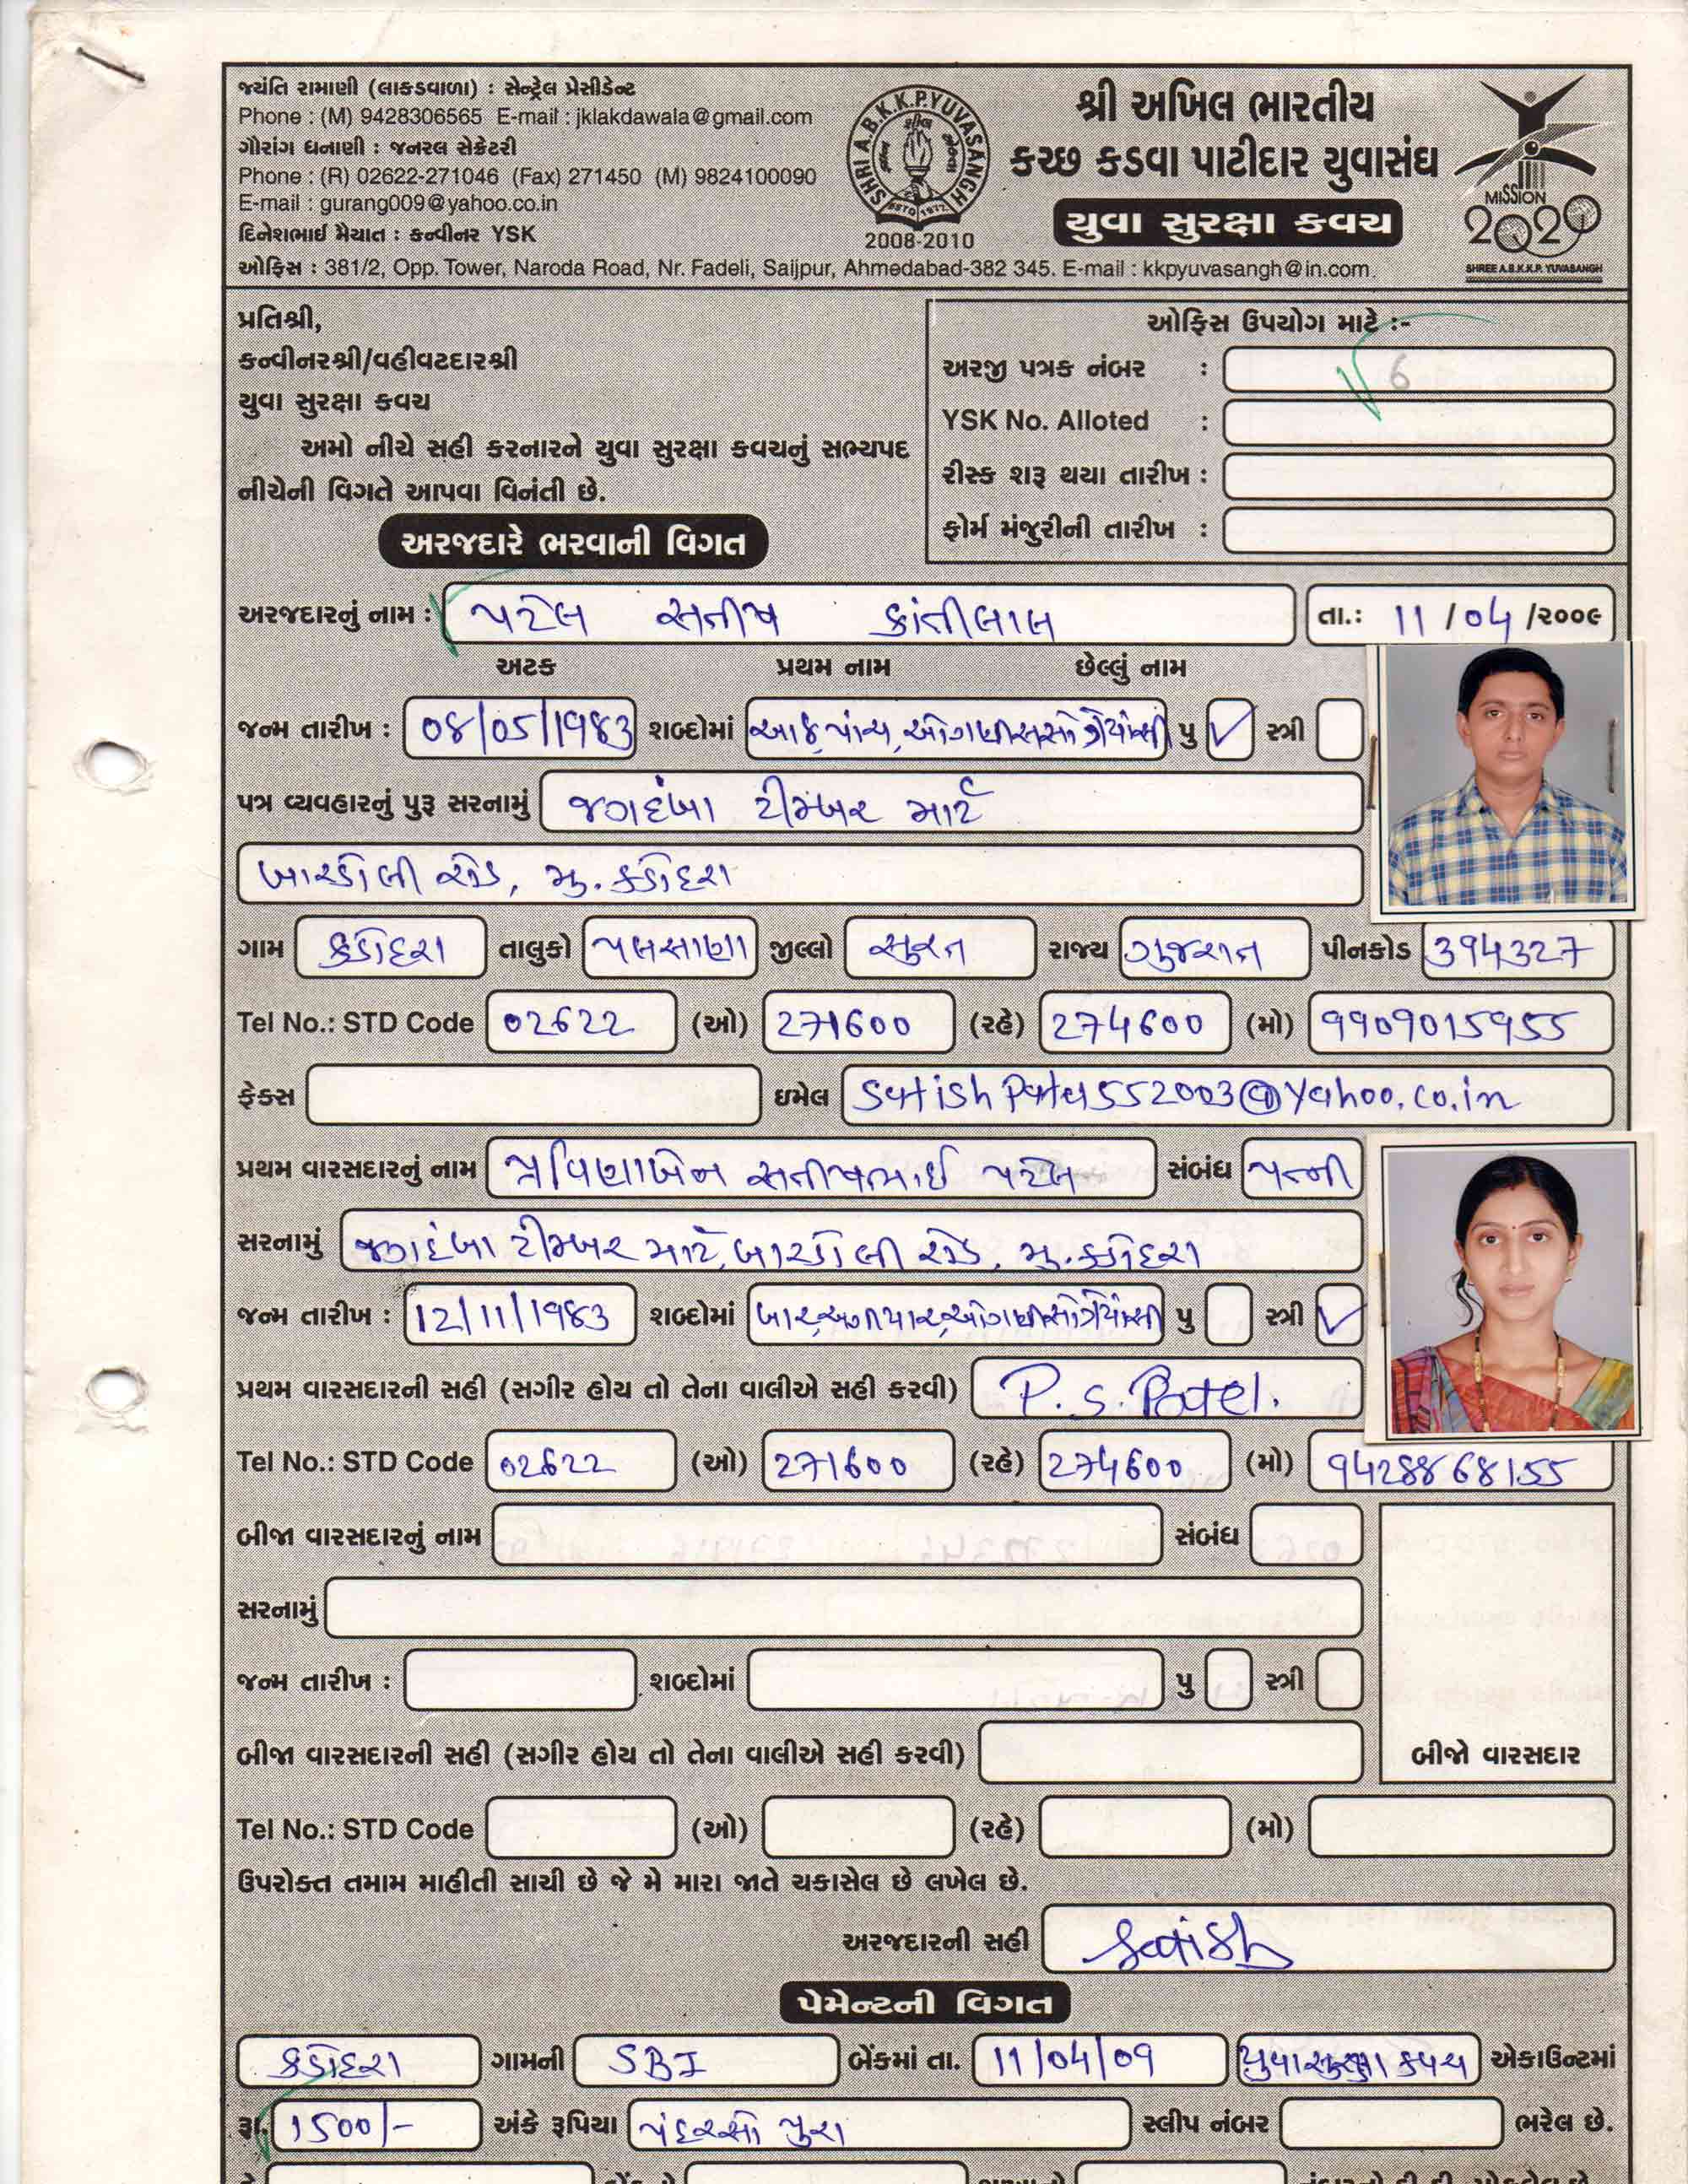 જયંતિ રામાણી (લાકડવાળા) : સેન્ટ્રેલ પ્રેસીડેન્ટ
Phone : (M) 9428306565 E-mail : jklakdawala@gmail.com
ગૌરાંગ ધનાણી : જનરલ સેક્રેટરી
Phone : (R) 02622-271046 (Fax) 271450 (M) 9824100090
E-mail : gurang009@yahoo.co.in
દિનેશભાઈ મૈયાત : કન્વીનર YSK
SHRI A.B.K.K.P. YUVASANGH
ESTD 1977
2008-2010
શ્રી અખિલ ભારતીય
કચ્છ કડવા પાટીદાર યુવાસંઘ
યુવા સુરક્ષા કવચ
MISSION
2020
SHREE A.B.K.K.P. YUVASANGH
ઓફિસ : 381/2, Opp. Tower, Naroda Road, Nr. Fadeli, Saijpur, Ahmedabad-382 345. E-mail : kkpyuvasangh@in.com.
પ્રતિશ્રી,
કન્વીનરશ્રી/વહીવટદારશ્રી
યુવા સુરક્ષા કવચ
અમો નીચે સહી કરનારને યુવા સુરક્ષા કવચનું સભ્યપદ
નીચેની વિગતે આપવા વિનંતી છે.
ઓફિસ ઉપયોગ માટે :-
અરજી પત્રક નંબર :
YSK No. Alloted :
રીસ્ક શરૂ થયા તારીખ :
ફોર્મ મંજુરીની તારીખ :
અરજદારે ભરવાની વિગત
અરજદારનું નામ : પટેલ સતીષ કાંતીલાલ તા.: 11 / 04 /૨૦૦૯
અટક પ્રથમ નામ છેલ્લું નામ
જન્મ તારીખ : 08/05/1983 શબ્દોમાં આઠ,પાંચ,ઓગણીસસો ત્રેયાંસી પુ ✓ સ્ત્રી
પત્ર વ્યવહારનું પુરૂ સરનામું જગદંબા ટીમ્બર માર્ટ
બારડોલી રોડ, મુ. કડોદરા
ગામ કડોદરા તાલુકો પલસાણા જીલ્લો સુરત રાજ્ય ગુજરાત પીનકોડ 394327
Tel No.: STD Code 02622 (ઓ) 271600 (રહે) 274600 (મો) 9909015955
ફેક્સ ઇમેલ SatishPatel552003@yahoo.co.in
પ્રથમ વારસદારનું નામ પ્રવિણાબેન સતીષભાઈ પટેલ સંબંધ પત્ની
સરનામું જગદંબા ટીમ્બર માર્ટ, બારડોલી રોડ, મુ. કડોદરા
જન્મ તારીખ : 12/11/1983 શબ્દોમાં બાર,અગયાર,ઓગણીસોત્રેયાંસી પુ સ્ત્રી ✓
પ્રથમ વારસદારની સહી (સગીર હોય તો તેના વાલીએ સહી કરવી) P. S. Patel.
Tel No.: STD Code 02622 (ઓ) 271600 (રહે) 274600 (મો) 9428868155
બીજા વારસદારનું નામ સંબંધ
સરનામું
જન્મ તારીખ : શબ્દોમાં પુ સ્ત્રી
બીજા વારસદારની સહી (સગીર હોય તો તેના વાલીએ સહી કરવી) બીજો વારસદાર
Tel No.: STD Code (ઓ) (રહે) (મો)
ઉપરોક્ત તમામ માહીતી સાચી છે જે મે મારા જાતે ચકાસેલ છે લખેલ છે.
અરજદારની સહી Satish
પેમેન્ટની વિગત
કડોદરા ગામની SBI બેંકમાં તા. 11/04/09 યુવા સુરક્ષા કવચ એકાઉન્ટમાં
રૂા. 1500/- અંકે રૂપિયા પંદરસો પુરા સ્લીપ નંબર ભરેલ છે.